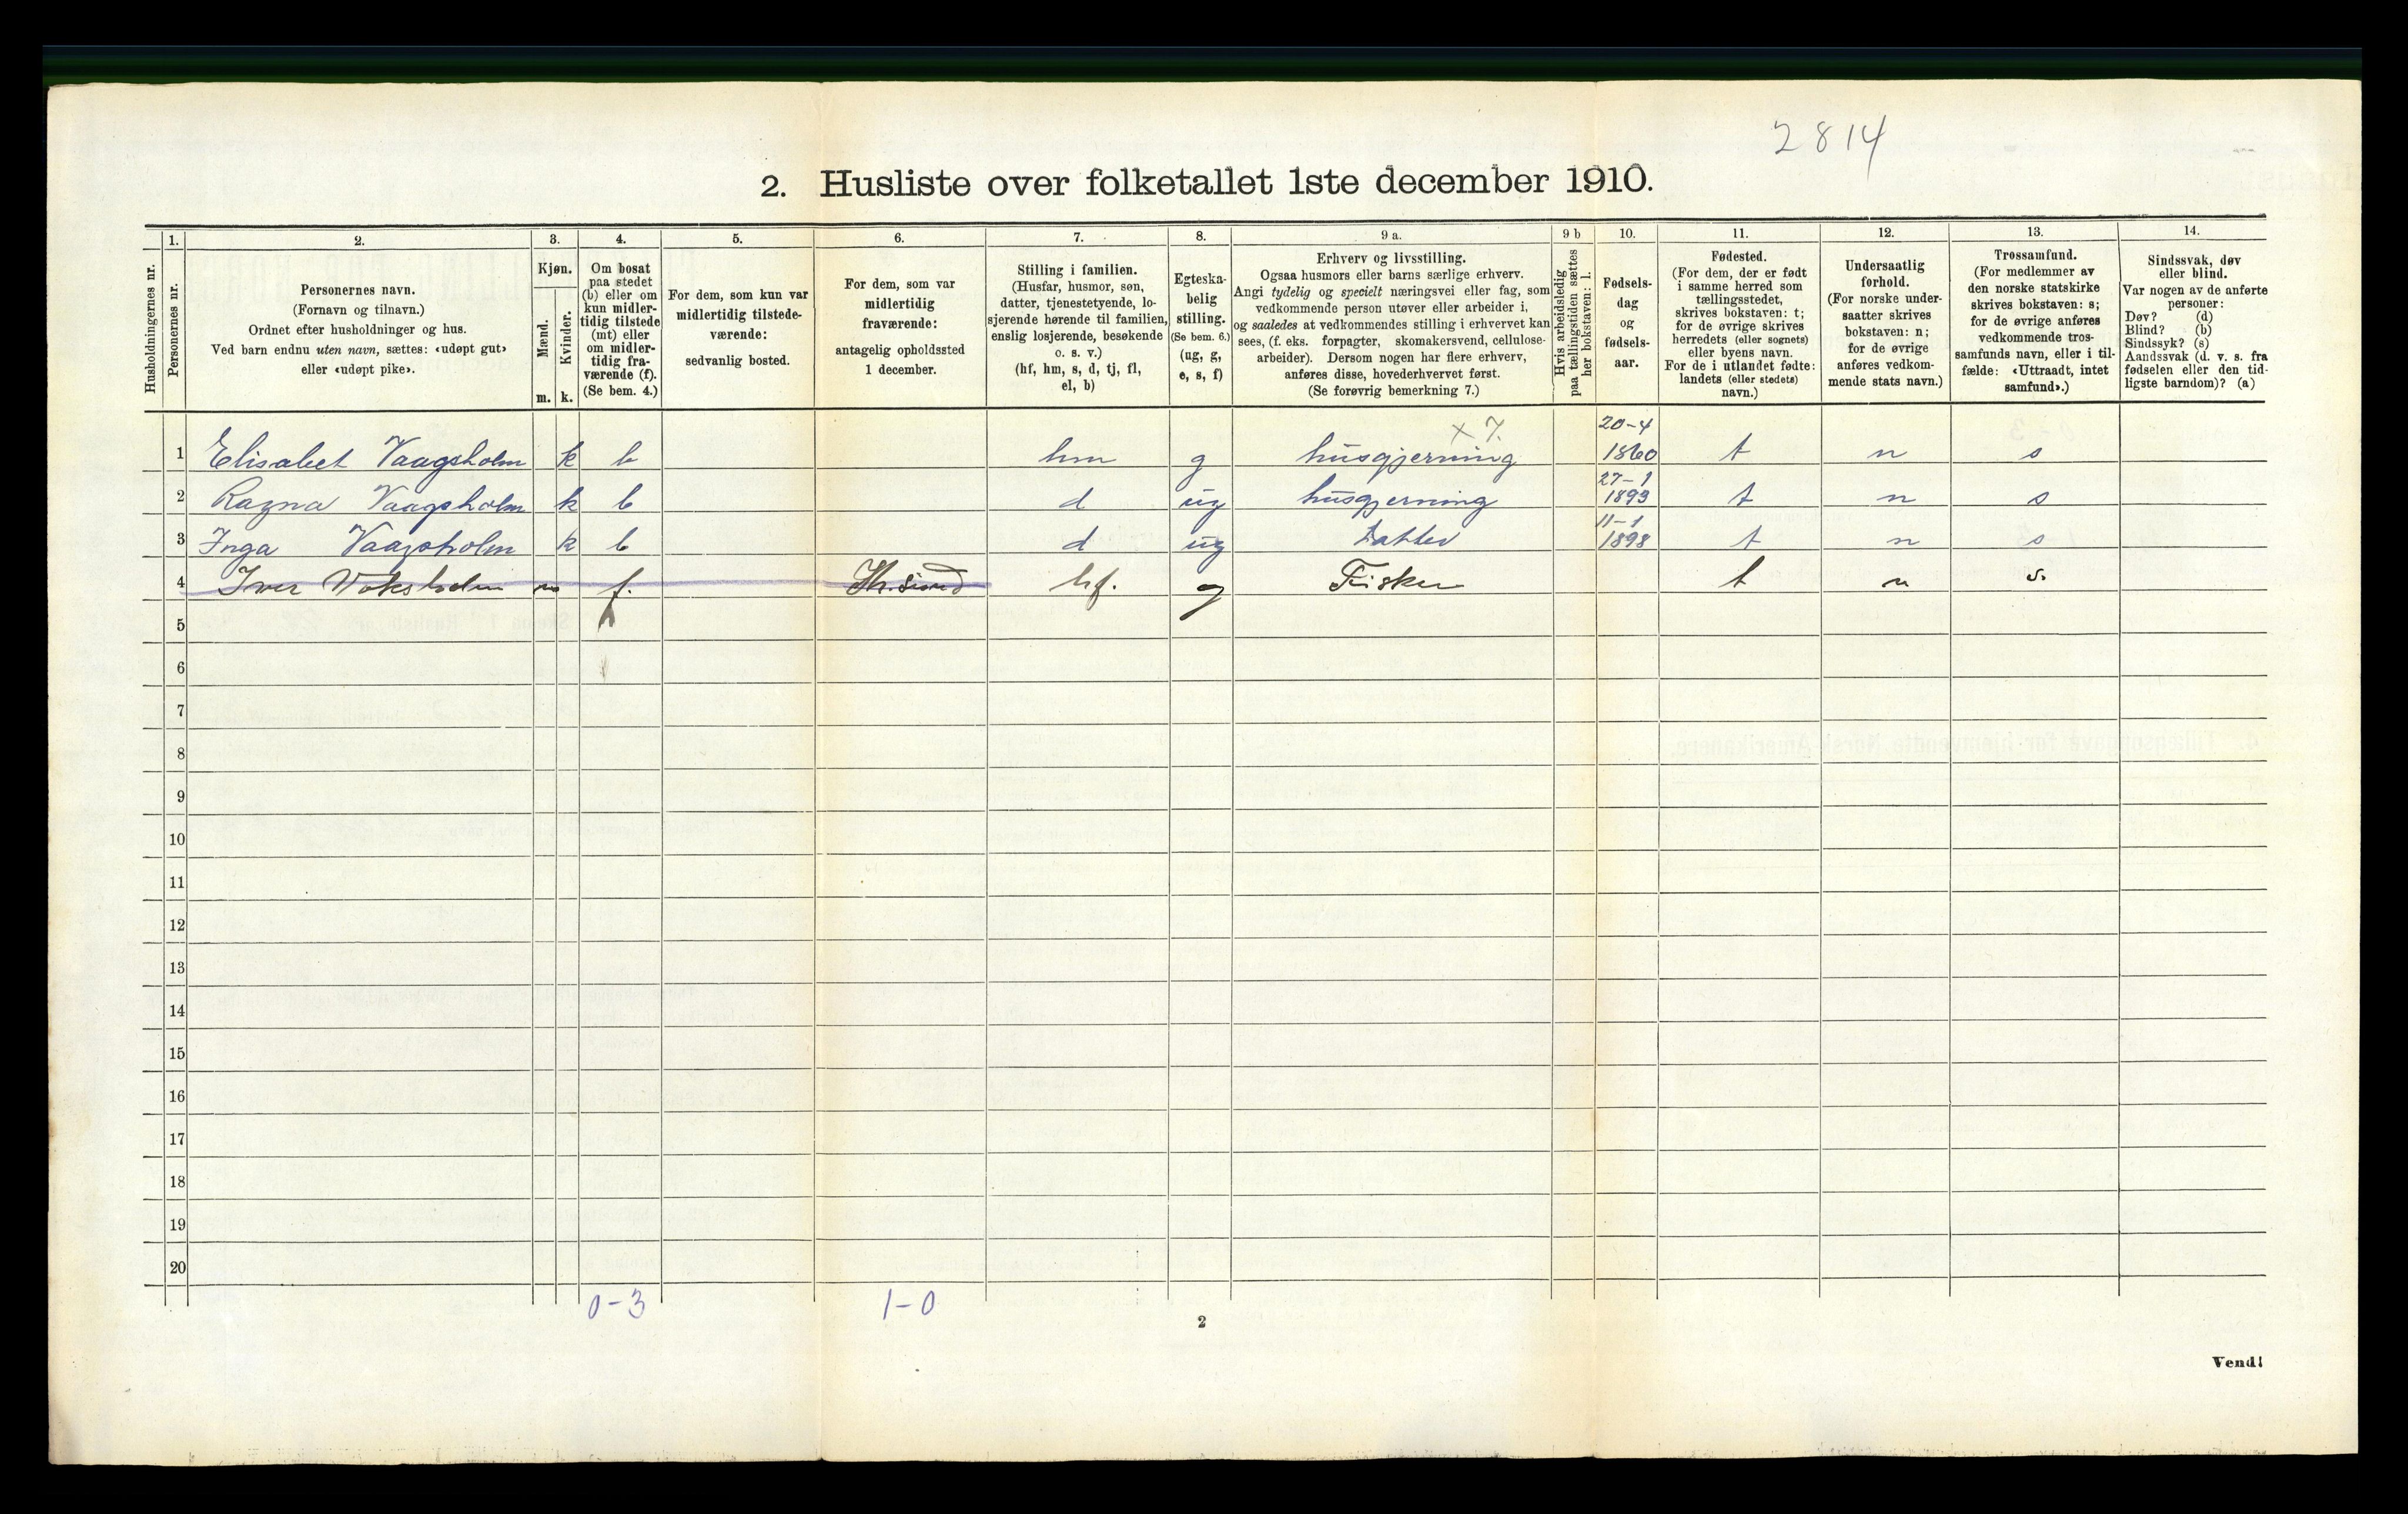 2814
2. Husliste over folketallet 1ste december 1910.
Husholdningernes nr.
1.
Personernes nr.
2.
Personernes navn.
(Fornavn og tilnavn.)
Ordnet efter husholdninger og hus.
Ved barn endnu uten navn, sættes: «udøpt gut»
eller «udøpt pike».
3.
Kjøn.
Mænd.
Kvinder.
m. k.
4.
Om bosat
paa stedet
(b) eller om
kun midler-
tidig tilstede
(mt) eller
om midler-
tidig fra-
værende (f).
(Se bem. 4.)
5.
For dem, som kun var
midlertidig tilstede-
værende:
sedvanlig bosted.
6.
For dem, som var
midlertidig
fraværende:
antagelig opholdssted
1 december.
7.
Stilling i familien.
(Husfar, husmor, søn,
datter, tjenestetyende, lo-
sjerende hørende til familien,
enslig losjerende, besøkende
o. s. v.)
(hf, hm, s, d, tj, fl,
el, b)
8.
Egteska-
belig
stilling.
(Se bem. 6.)
(ug, g,
e, s, f)
9 a.
Erhverv og livsstilling.
Ogsaa husmors eller barns særlige erhverv.
Angi tydelig og specielt næringsvei eller fag, som
vedkommende person utøver eller arbeider i,
og saaledes at vedkommendes stilling i erhvervet kan
sees, (f. eks. forpagter, skomakersvend, cellulose-
arbeider). Dersom nogen har flere erhverv,
anføres disse, hovederhvervet først.
(Se forøvrig bemerkning 7.)
9 b
Hvis arbeidsledig
paa tællingstiden sættes
her bokstaven: l.
10.
Fødsels-
dag
og
fødsels-
aar.
11.
Fødested.
(For dem, der er født
i samme herred som
tællingsstedet,
skrives bokstaven: t;
for de øvrige skrives
herredets (eller sognets)
eller byens navn.
For de i utlandet fødte:
landets (eller stedets)
navn.)
12.
Undersaatlig
forhold.
(For norske under-
saatter skrives
bokstaven: n;
for de øvrige
anføres vedkom-
mende stats navn.)
13.
Trossamfund.
(For medlemmer av
den norske statskirke
skrives bokstaven: s;
for de øvrige anføres
vedkommende tros-
samfunds navn, eller i til-
fælde: «Uttraadt, intet
samfund».)
14.
Sindssvak, døv
eller blind.
Var nogen av de anførte
personer:
Døv? (d)
Blind? (b)
Sindssyk? (s)
Aandssvak (d. v. s. fra
fødselen eller den tid-
ligste barndom)? (a)
x 7.
20-4
1 Elisabet Vaagsholm k b hm g husgjerning 1860 t n s
27-1
2 Ragna Vaagsholm k b d ug husgjerning 1893 t n s
11-1
3 Inga Vaagsholm k b d ug Datter 1898 t n s
4 Iver m f. hf. g Fisker t n s.
5
6
7
8
9
10
11
12
13
14
15
16
17
18
19
20
0-3 1-0
2
Vend!